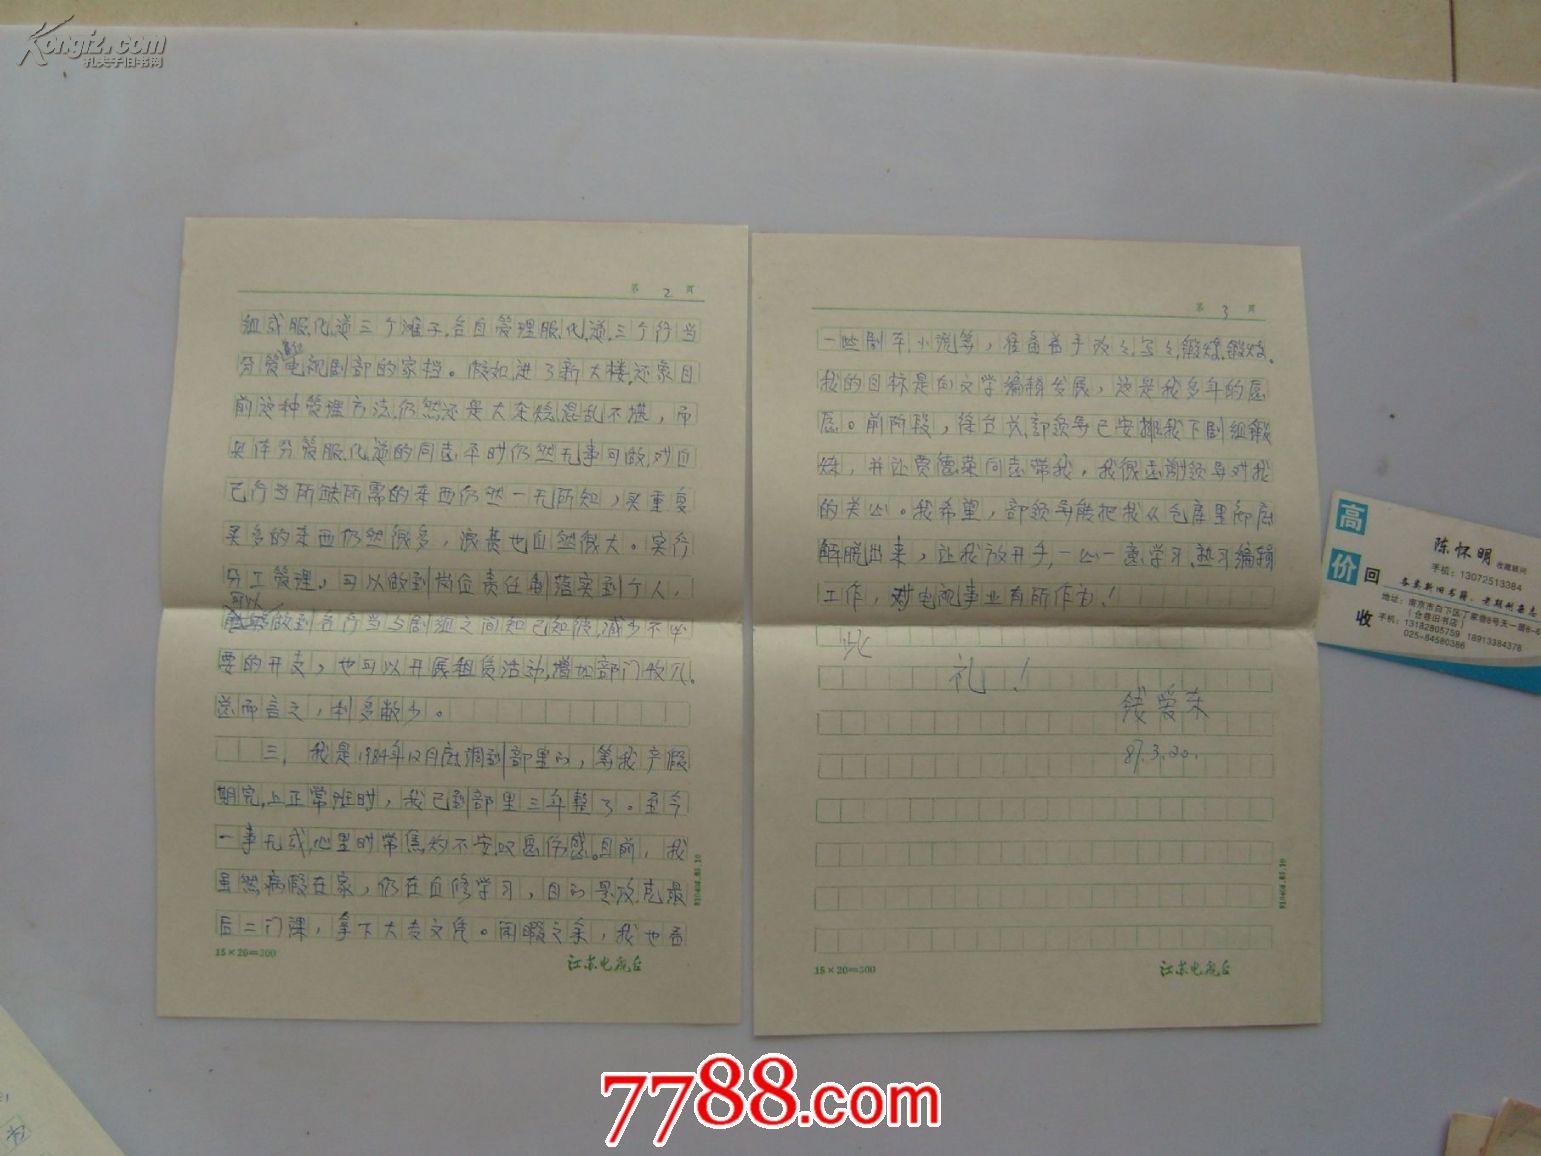 Kongfz.com
孔夫子旧书网
第 2 页
组或服、化、道三个摊子,各自管理服、化、道、三个行当
分管电视剧部的家档。假如进了新大楼,还象目
前这种管理方法,仍然还是大杂烩,混乱不堪,而
具体分管服、化、道的同志平时仍然无事可做,对自
己行当所缺所需的东西仍然一无所知,买重复
买多的东西仍然很多,浪费也自然很大。实行
分工管理,可以做到岗位责任制落实到个人,
可以
做到各行当与剧组之间知己知彼,减少不必
要的开支,也可以开展租赁活动,增加部门收入。
总而言之,利多弊少。
三、我是1984年12月底调到部里的,等我产假
期完,上正常班时,我已到部里三年整了。至今
一事无成,心里时常焦灼不安,叹息伤感。目前,我
虽然病假在家,仍在自修学习,目的是攻克最
后二门课,拿下大专文凭。闲暇之余,我也看
15×20=300
江苏电视台
第 3 页
一些剧本、小说等,准备着手改改、写写,锻炼锻炼。
我的目标是向文学编辑发展,这是我多年的愿
愿。前阶段,徐台长、部领导已安排我下剧组锻
炼,并让贾德荣同志带我,我很感谢领导对我
的关心。我希望,部领导能把我从仓库里彻底
解脱出来,让我放开手,一心一意学习、熟习编辑
工作,对电视事业有所作为!
此
礼!
钱爱东
87.3.20.
15×20=300
江苏电视台
高价回收
陈怀明 收藏顾问
手机:13072513384
各类新旧书籍、老期刊杂志
手机:13182805759 18913384378
025-84580386
7788.com